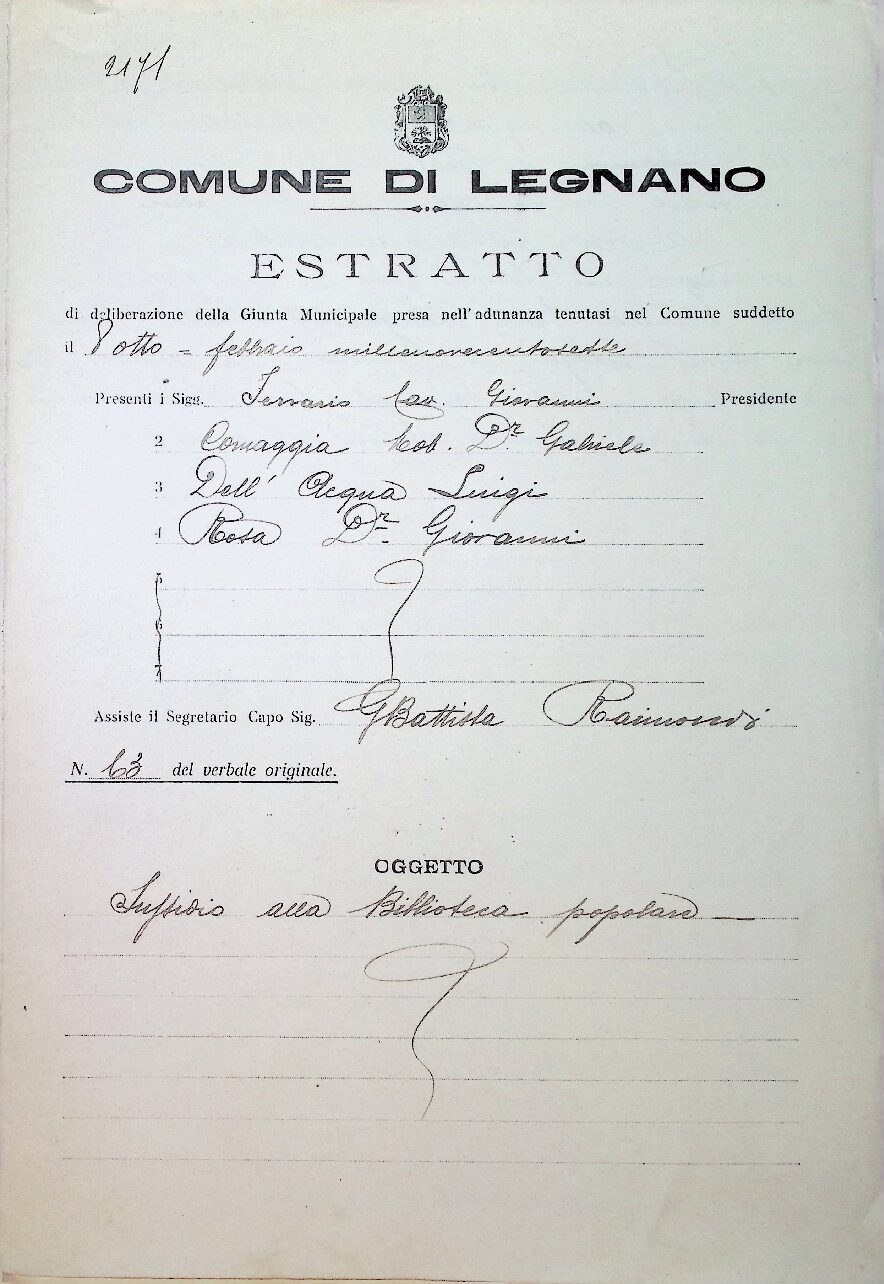 2171
COMUNE DI LEGNANO
ESTRATTO
di deliberazione della Giunta Municipale presa nell'adunanza tenutasi nel Comune suddetto
il 8 otto = febbraio millenovecentosette
Presenti i Sigg. Ferrario Cav. Giovanni Presidente
2 Cornaggia Nob. Dr. Gabriele
3 Dell'Acqua Luigi
4 Rosa Dr. Giovanni
5
6
7
Assiste il Segretario Capo Sig. GBattista Raimondi
N. 13 del verbale originale.
OGGETTO
Sussidio alla Biblioteca popolare